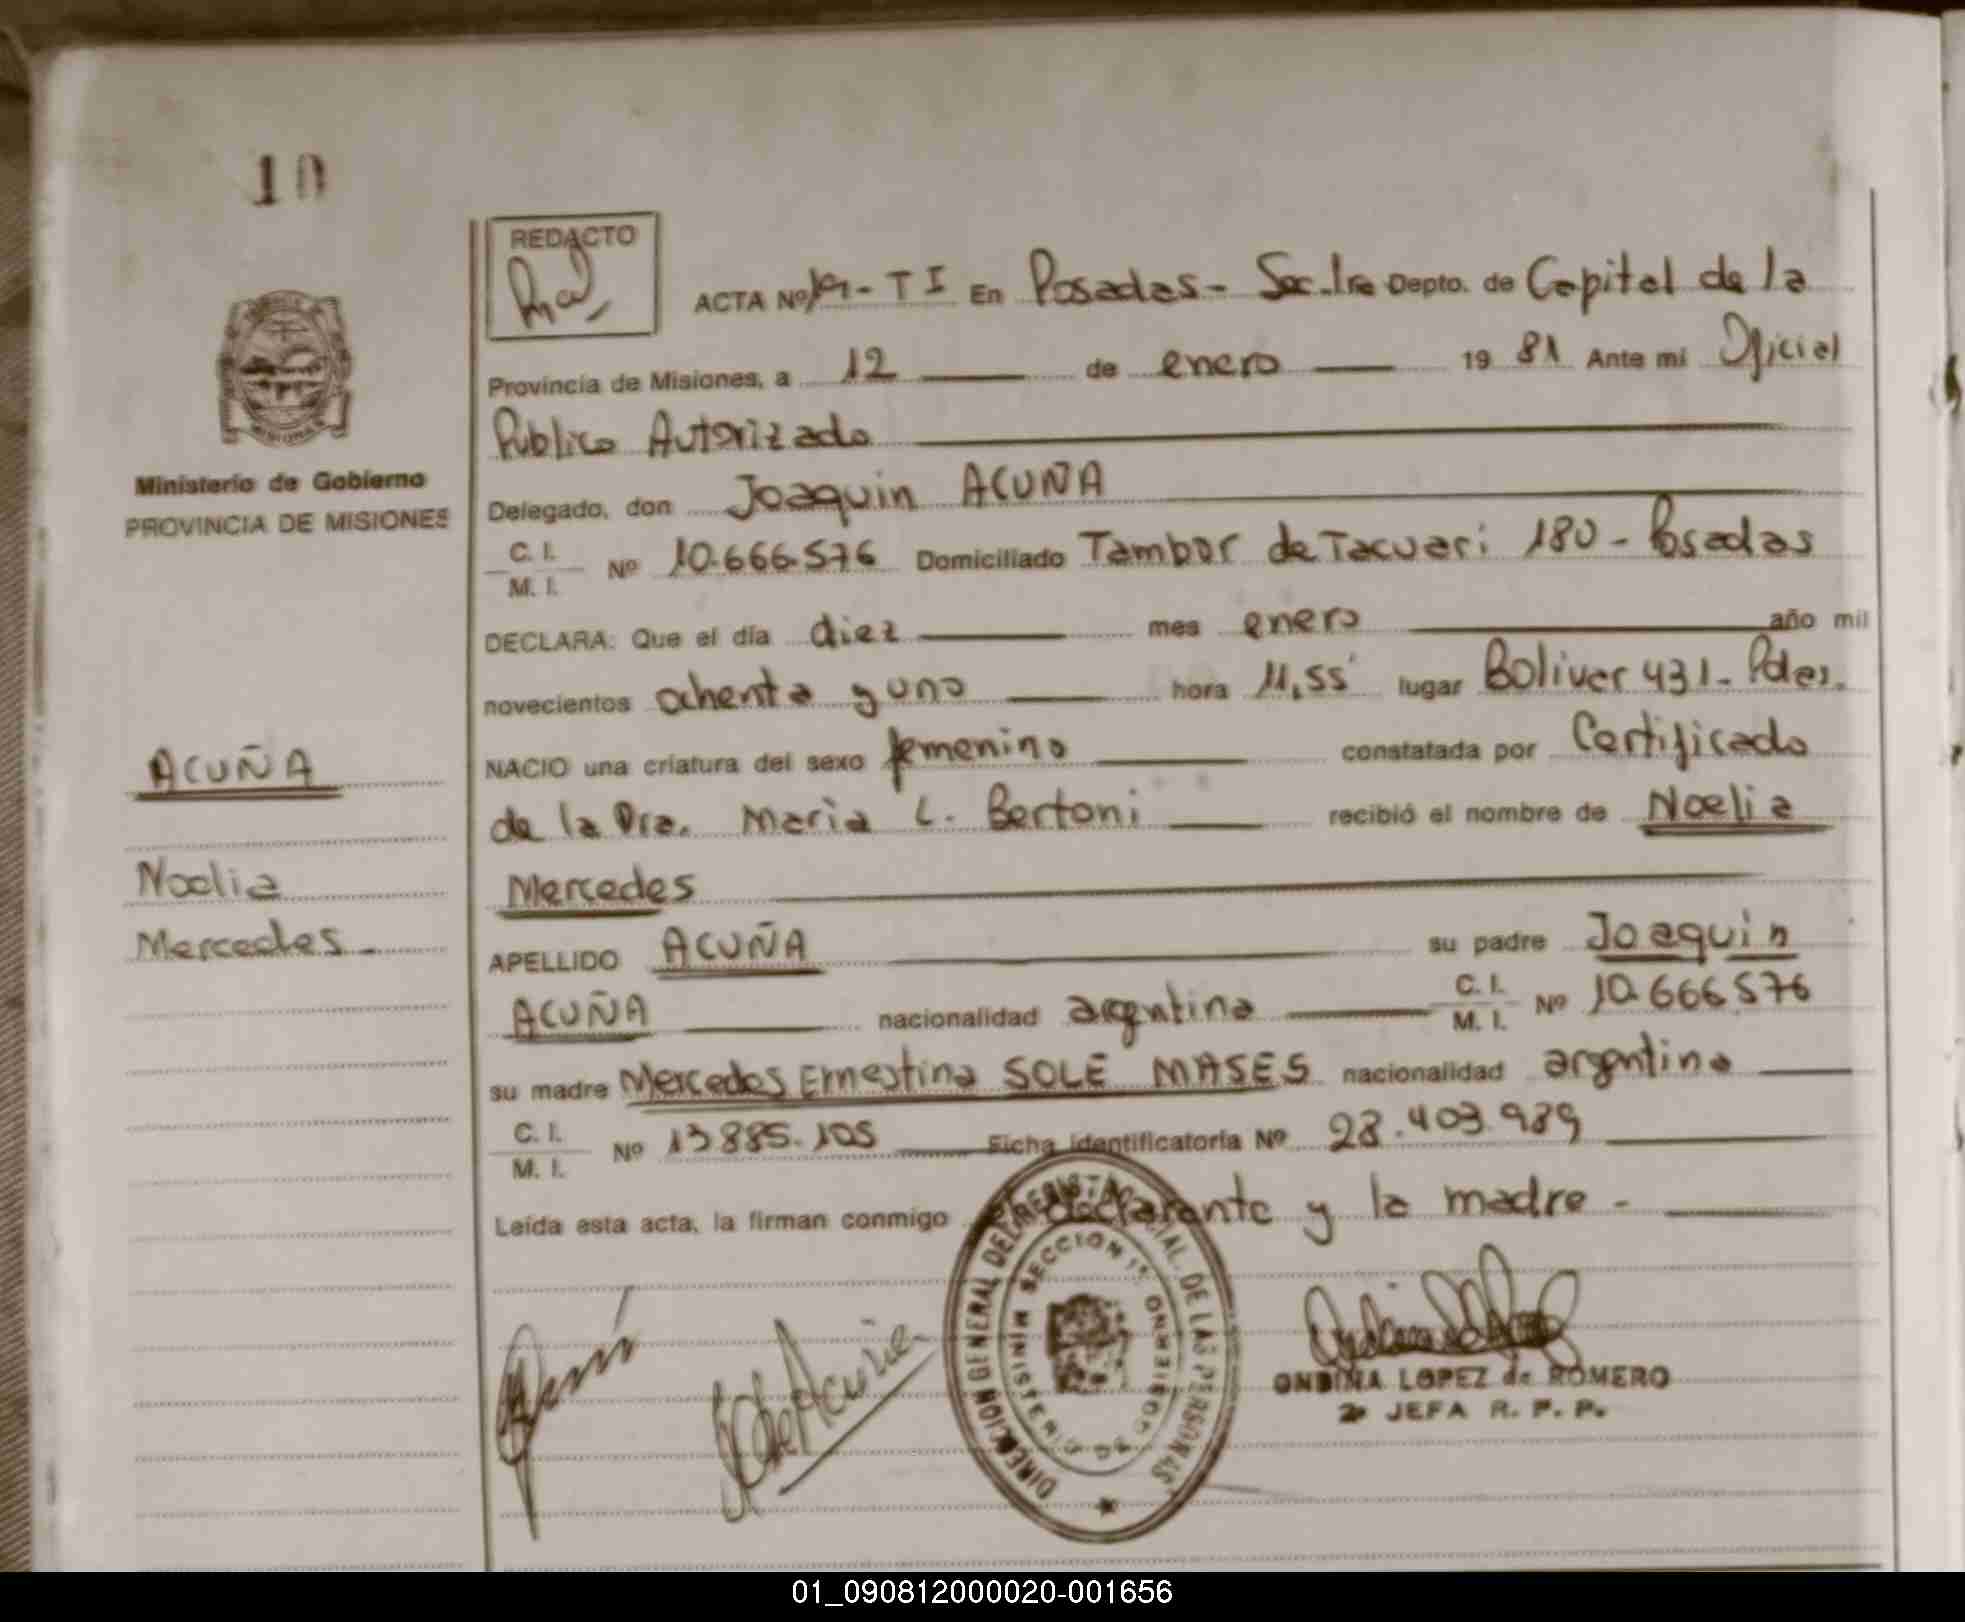 10
Ministerio de Gobierno
PROVINCIA DE MISIONES
ACUÑA
Noelia
Mercedes -
REDACTO
ACTA Nº 19-TI En Posadas - Sec. 1ra Depto. de Capital de la
Provincia de Misiones, a 12 de enero 1981 Ante mi Oficial
Publico Autorizado
Delegado, don Joaquin ACUÑA
C. I. M. I. Nº 10.666.576 Domiciliado Tambor de Tacuari 180 - Posadas
DECLARA: Que el día diez mes enero año mil
novecientos ochenta y uno hora 11,55' lugar Bolivar 431 - Pdas.
NACIO una criatura del sexo femenino constatada por Certificado
de la Dra. Maria L. Bertoni recibió el nombre de Noelia
Mercedes
APELLIDO ACUÑA su padre Joaquin
ACUÑA nacionalidad argentina C. I. M. I. Nº 10.666.576
su madre Mercedes Ernestina SOLE MASES nacionalidad argentina
C. I. M. I. Nº 13.885.105 Ficha identificatoria Nº 28.403.989
Leída esta acta, la firman conmigo el declarante y la madre -
DIRECCION GENERAL DEL REGISTRO PROVINCIAL DE LAS PERSONAS
SECCION 1ª
MINISTERIO DE GOBIERNO
MISIONES
ONDINA LOPEZ de ROMERO
2ª JEFA R. P. P.
01_090812000020-001656